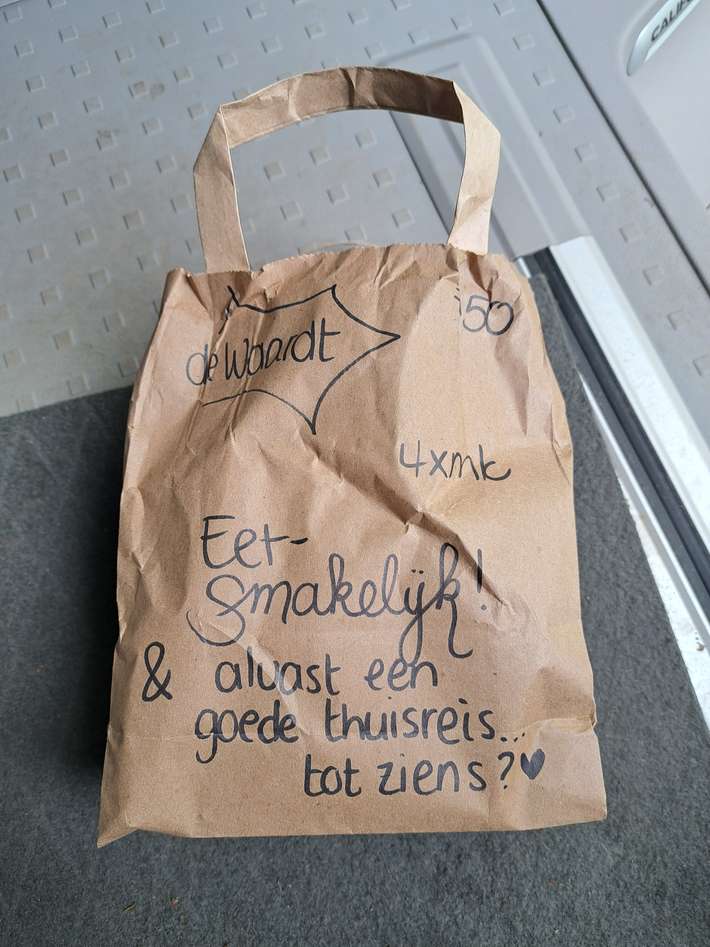 CALIF
de Waardt
50
4xmk
Eet-
Smakelijk!
& alvast een
goede thuisreis...
tot ziens?♥